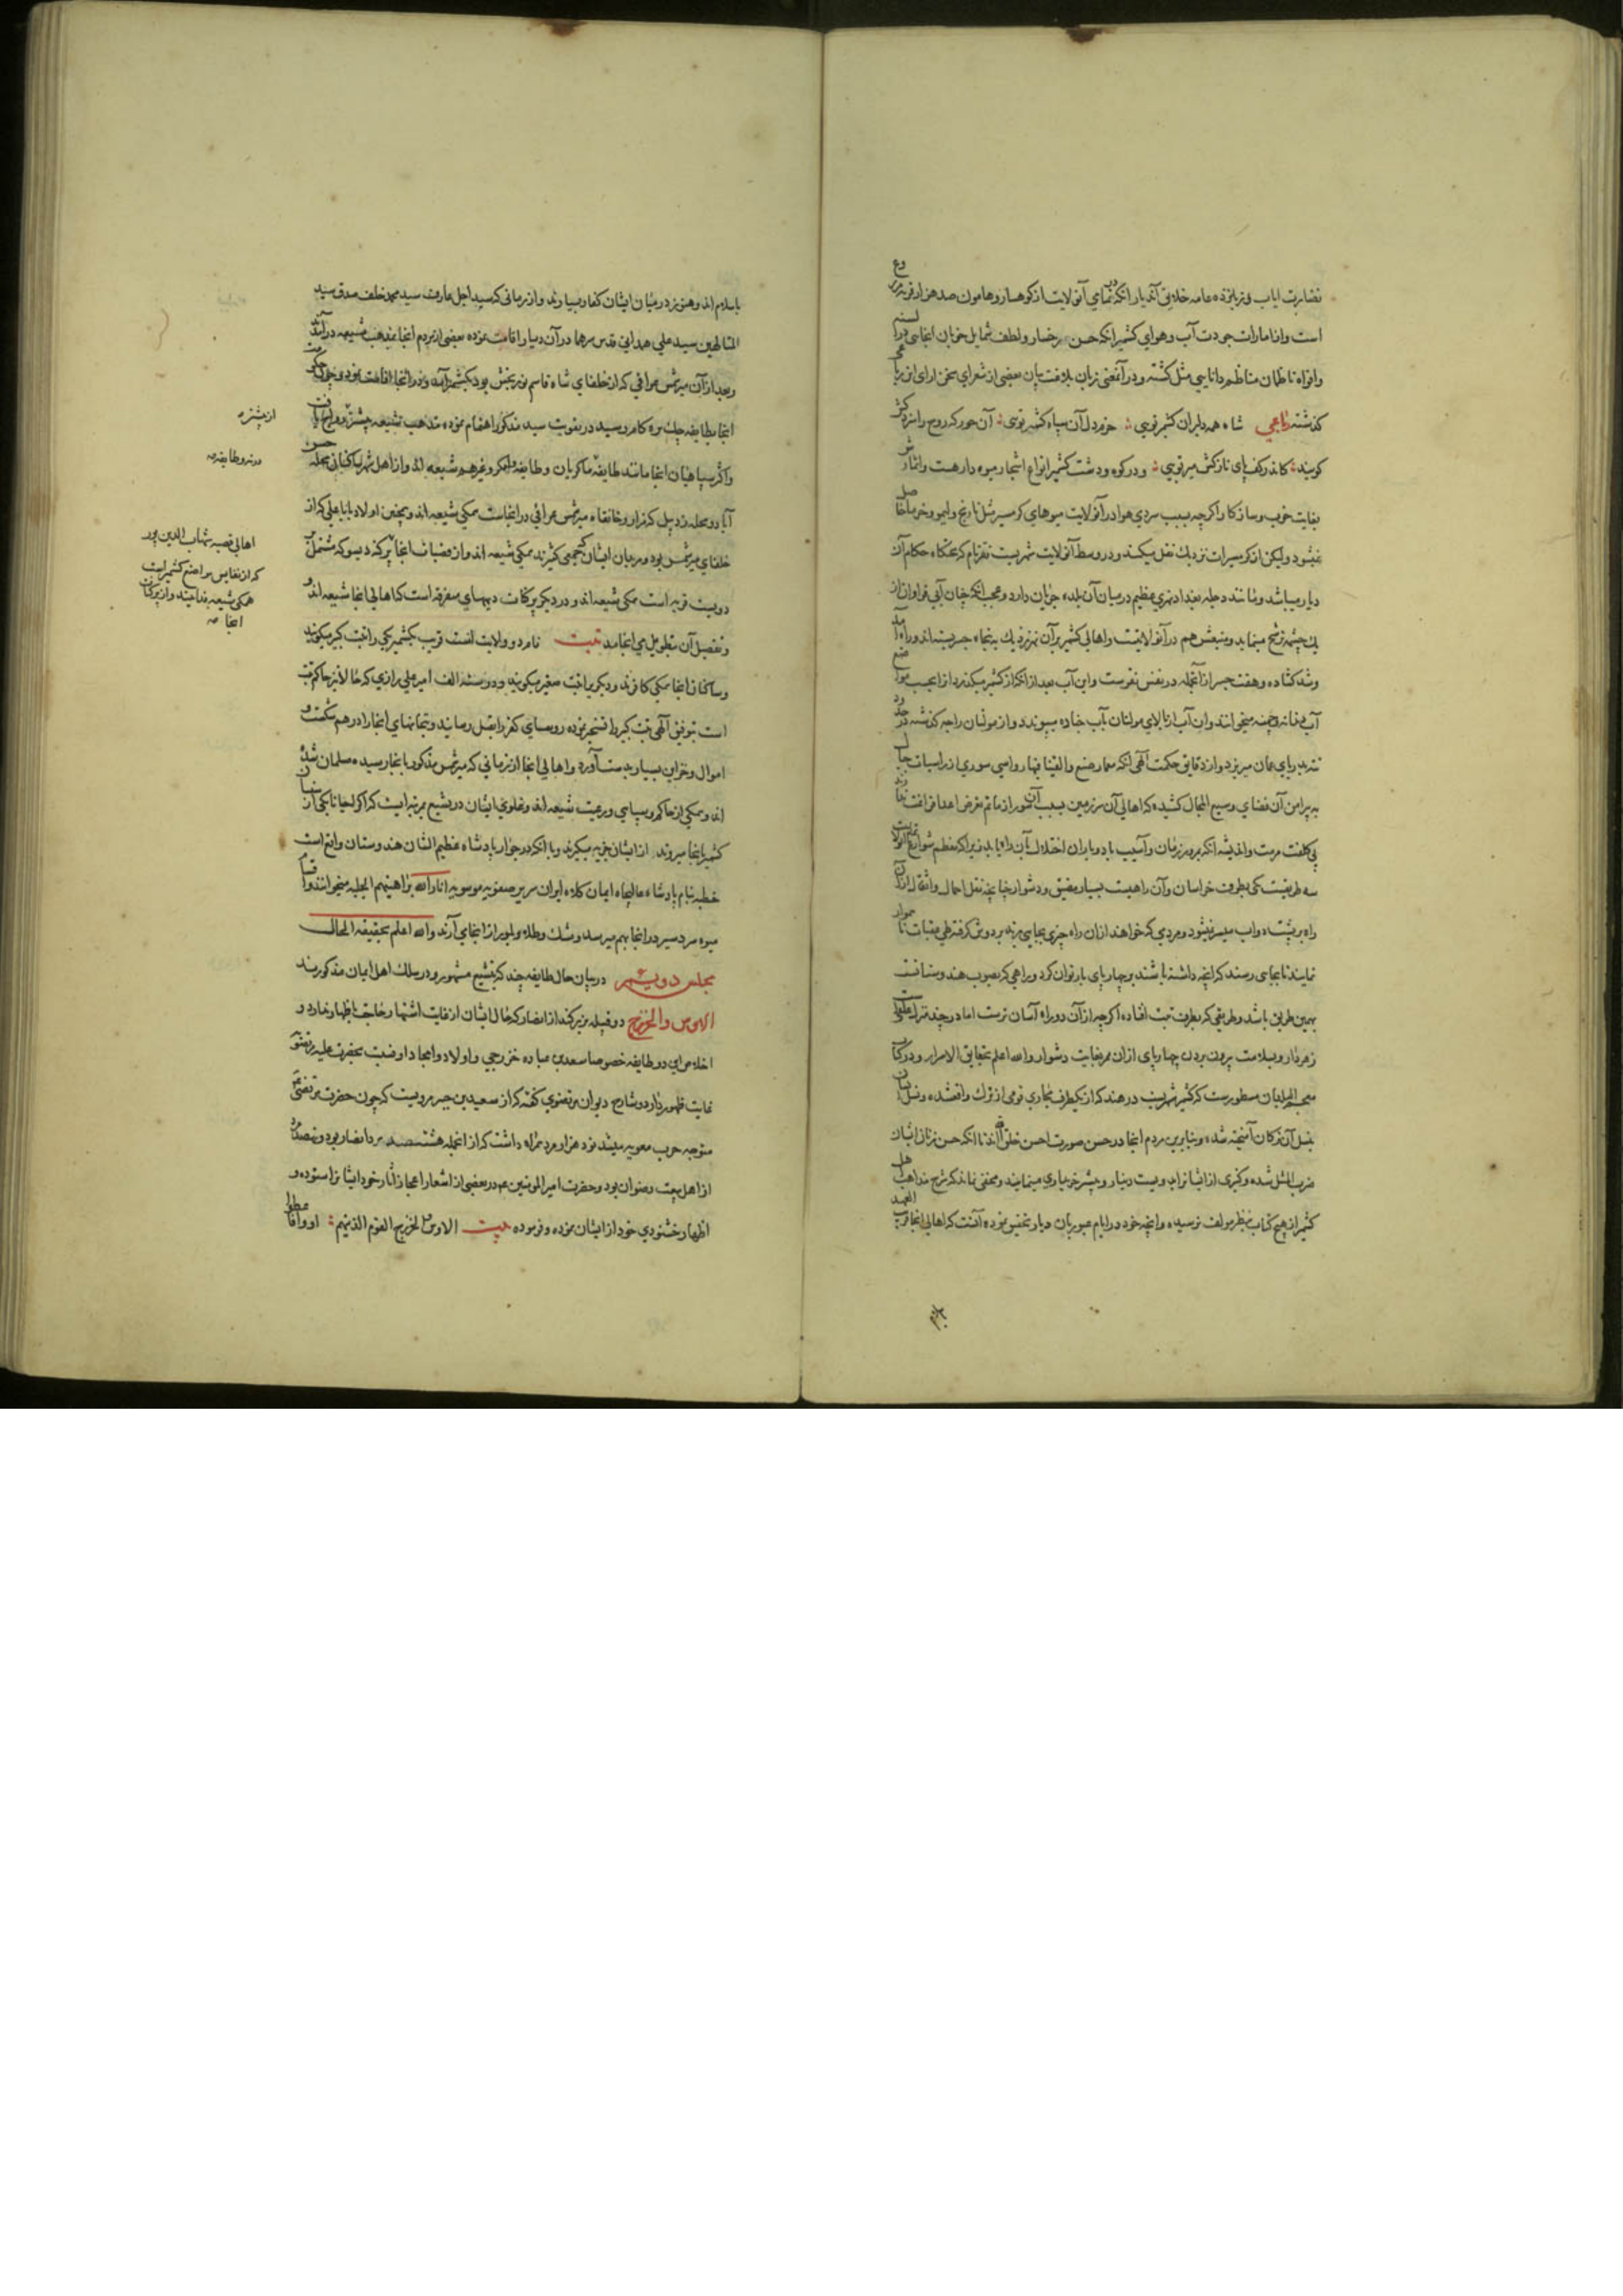 نضارت ایاب و زبانزده عامه خلایق آندیار انکه در تمامی آنولایت از کوهسار و هامون صد هزار قریه مزروع
است و از امارات جودت آب و هوای کشمیر انکه حسن رخسار و لطف شمایل خوبان انجا در السنه
و افواه ناظمان مناظم دانایی مثل کشته و در آنمعنی زبان بلاغت بیان بعضی از شعرای سخن ارای این رباعی
کذشته رباعی شاه همه دلبران کشمیر تویی خرم دل آن سپاه کش میر تویی آن حور که روح را سزد کش
کویند کاندر کف پای نازکش میر تویی و در کوه و دشت کشمیر انواع اشجار میوه دار هست و اثمارش
بغایت خوب و سازکار اکرچه بسبب سردی هوا در آنولایت میوهای کرمسیر مثل نارنج و لیمو و خرما حاصل
نمیشود و لیکن از کرمسیرات نزدیک نقل میکنند و در وسط آنولایت شهریست نغز نام که تختکاه حکام آن
دیار میباشد و مانند دجله بغداد نهری عظیم در میان آن بلده جریان دارد و عجب انکه چنان آبی فراوان از
یک چشمه ترشح مینماید و منبعش هم در آنولایتست و اهالی کشمیر بر آن نهر نزدیک به پنجاه جسر بسته اند و راه آمد
وشد کشاده و هفت جسر از آنجمله در نفس نغرست و این آب بعد از انکه از کشمیر میکذرد از اعجب مواضع
آب دندانه و چنه میخوانند و آن آب از بالای مولتان بآب جناده میپیوندد و از مولتان راجه کذشته در حدود
تته بدریای عمان میریزد و از دقایق حکمت آلهی انکه معمار صنع و القینا فیها رواسی سوری از راسیات جبال
به پیرامن آن فضای وسیع المجال کشیده که اهالی آن سرزمین بسبب آن سور از ماتم تعرض اعدا فراغت دارند
بی کلفت مرمت و اندیشه انکه بمرور زمان و آسیب باد و باران اختلال بآن راه یابد زیرا که معظم شوارع آنولایت
سه طریقست یکی بطرف خراسان و آن راهیست بسیار مضیق و دشوار چنانچه نقل احمال و اثقال از آن
راه بر پشت دواب میسر نمیشود و مردمی که خواهند از آن راه چیزی بجایی برند بر دوش کرفته طی عقبات ناهموار
نمایند تا بجای رسند که انچه داشته باشند بر چارپای بار توان کرد و راهی که بصوب هندوستانست
بهمین طریق باشد و طریقی که بطرف تبت افتاده اکرچه از آن دو راه آسان ترست اما در چند منزل علفهای
زهردار و بسلامت بیرون بردن چهارپای از آن ممر بغایت دشوار والله اعلم بحقایق الاسرار و در کتاب
معجم البلدان مسطورست که کشمیر شهریست در هند که از یکطرف مجاور قومی از ترک واقعشده و نسل ایشان
بنسل آن ترکان آمیخته شده و بنابرین مردم انجا در حسن صورت احسن خلق الله اند تا انکه حسن زنان ایشان
ضرب المثل شده و کنیزی از ایشانرا به دویست دینار و بیشتر خریداری مینمایند و مخفی نماند که شرح مذاهب اهل
کشمیر از هیچ کتاب بنظر مولف نرسیده و انچه خود در ایام عبور بآن دیار تحقیق نموده آنست که اهالی انجا قریب العهد
باسلام اند و هنوز در میان ایشان کفار بسیارند و از زمانی که سید اجل عارف سید محمد خلف صدق سید
المتالهین سید علی همدانی قدس سرهما در آن دیار اقامت نموده بعضی از مردم انجا بمذهب شیعه در آمدند
و بعد از آن میر شمس عراقی که از خلفای شاه قاسم نوربخش بود بکشمیر آمد و در انجا اقامت نمود و چون حکومت
انجا بطایفه چک تره کام رسید در تقویت سید مذکور اهتمام نموده مذهب تشیع پیشتر رواج یافت
از پیشتر
و اکثر سپاهیان انجا مانند طایفه ماکریان و طایفه و غیرهم شیعه اند و از اهل شهر ساکنان محله حسن
درنر و طایفه
آباد و محله زدیبل که مزار و خانقاه میر شمس عراقی در انجاست همکی شیعه اند و همچنین اولاد بابا علی که از
خلفای میر شمس بود و مریدان ایشان که جمعی کثیرند همکی شیعه اند و از قصبات انجا پرکنه دیسو که مشتمل بر
اهالی قصبه شهاب الدین پور
که از نفایس مواضع کشمیر است
همکی شیعه فداییند و از پرکنات
انجا
دویست قریه است همکی شیعه اند و در دیکر پرکنات دیهای متفرقه است که اهالی انجا شیعه اند و
و تفصیل آن بتطویل می انجامد تبت نام دو ولایت است قریب بکشمیر یکی را تبت کبیر میکویند
و ساکنان انجا همکی کافرند و دیکریرا تبت صغیر میکویند و در سنه الف امیر علی رازی که حالا نیز حاکم تبت
است بتوفیق آلهی تبت کبیر را فتح نموده روسای کفر را بقتل رسانید و بتخانهای انجا را در هم شکست و
اموال و خزاین بسیار بدست آورد و اهالی انجا از زمانی که میر شمس مذکور بانجا رسیده مسلمان شده
اند و همکی از حاکم و سپاهی و رعیت شیعه اند و غلوی ایشان در تشیع بمرتبه ایست که اکر احیانا یکی از سنیان
کشمیر بانجا میروند از ایشان جزیه میکیرند و با انکه در جوار پادشاه عظیم الشان هندوستان واقع است
خطبه بنام پادشاه عالیجاه ایمان کلاه ایوان سریر صفویه موسویه انار الله براهینهم الجلیه میخوانند و اقسام
میوه سردسیر در انجا بهم میرسد و مشک و طلا و بلور از انجا می آرند والله اعلم بحقیقه الحال
مجلس دویم در بیان حال طایفه چند که بتشیع مشهور و در سلک اهل ایمان مذکورند
الاوس والخزرج دو قبیله بزرکند از انصار که حال ایشان از غایت اشتهار حاجت باظهار ندارد و
اخلاص این دو طایفه خصوصا سعد بن عباده خزرجی و اولاد و امجاد او نسبت بحضرت علیه مرتضوی
غایت ظهور دارد و شارح دیوان مرتضوی کفته که از سعید بن جبیر مرویست که چون حضرت مرتضی
متوجه حرب معویه میشد نود هزار مرد همراه داشت که از انجمله هشتصد مرد انصار بود و نهصد مرد
از اهل بیعت رضوان بود و حضرت امیر المومنین ع در بعضی از اشعار اعجاز آثار خود ایشانرا ستوده و
اظهار خشنودی خود از ایشان نموده و فرموده بیت الاوس و الخزرج القوم الذینهم اووا فاعطوا